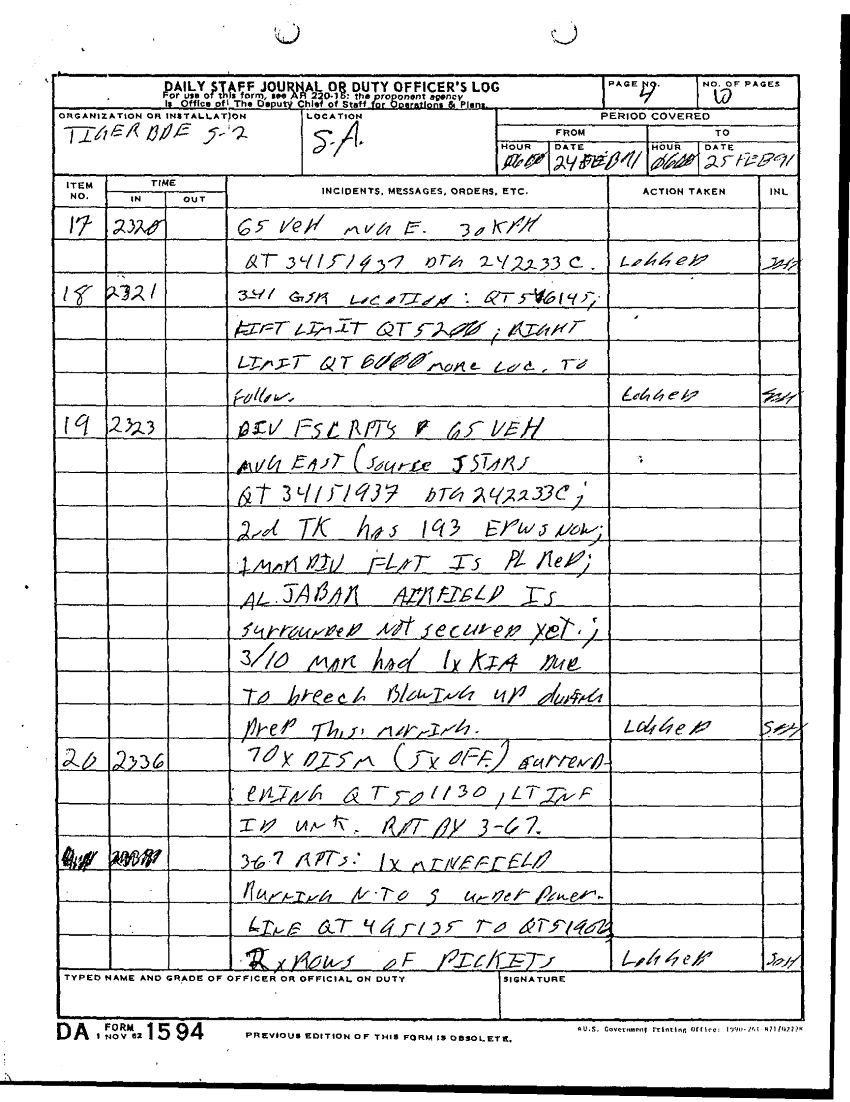 DAILY STAFF JOURNAL OR DUTY OFFICER'S LOG
For use of this form, see AR 220-15: the proponent agency
is Office of The Deputy Chief of Staff for Operations & Plans.
PAGE NO.
4
NO. OF PAGES
ORGANIZATION OR INSTALLATION
TIGER BDE S-2
LOCATION
S.A.
PERIOD COVERED
FROM
TO
HOUR
0600
DATE
24 FEB 91
HOUR
0600
DATE
25 FEB 91
ITEM NO.
TIME
IN
OUT
INCIDENTS, MESSAGES, ORDERS, ETC.
ACTION TAKEN
INL
17 2320 65 VEH MVG E. 30 KPH
QT 34151937 DTG 242233C. LOGGED
18 2321 341 GSR LOCATION: QT 6145;
LEFT LIMIT QT 5200; RIGHT
LIMIT QT 6000 MORE LOC. TO
FOLLOW. LOGGED
19 2323 DIV FSE RPTS 65 VEH
MVG EAST (SOURCE JSTARS
QT 34151937 DTG 242233C;
2nd TK has 193 EPWS NOW;
1 MAR DIV FLOT IS PL RED;
AL JABAR AIRFIELD IS
surrounded Not secured yet.;
3/10 MAR had 1x KIA DUE
TO breech Blowing up during
prep This morning. LOGGED
20 2336 70x DISM (5x OFF.) surrend-
ering QT 501130, LT INF
ID UNK. RPT BY 3-67.
367 RPTS: 1x MINEFIELD
Running N TO S under Power-
LINE QT 495135 TO
2x ROWS OF PICKETS LOGGED
TYPED NAME AND GRADE OF OFFICER OR OFFICIAL ON DUTY
SIGNATURE
DA FORM 1594
1 NOV 62
PREVIOUS EDITION OF THIS FORM IS OBSOLETE.
U.S. Government Printing Office: